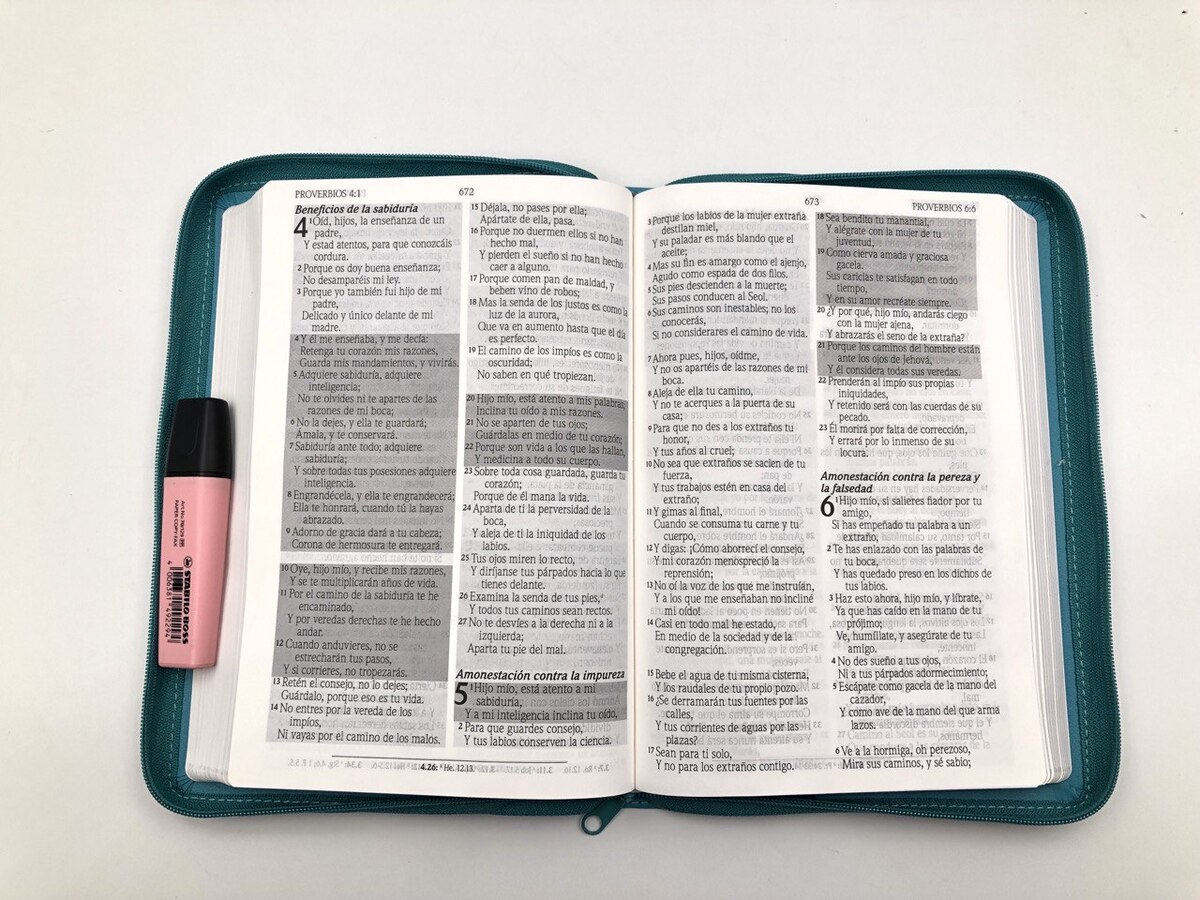 PROVERBIOS 4:1
672
Beneficios de la sabiduría
4 1Oíd, hijos, la enseñanza de un
padre,
Y estad atentos, para que conozcáis
cordura.
2 Porque os doy buena enseñanza;
No desamparéis mi ley.
3 Porque yo también fui hijo de mi
padre,
Delicado y único delante de mi
madre.
4 Y él me enseñaba, y me decía:
Retenga tu corazón mis razones,
Guarda mis mandamientos, y vivirás.
5 Adquiere sabiduría, adquiere
inteligencia;
No te olvides ni te apartes de las
razones de mi boca;
6 No la dejes, y ella te guardará;
Ámala, y te conservará.
7 Sabiduría ante todo; adquiere
sabiduría;
Y sobre todas tus posesiones adquiere
inteligencia.
8 Engrandécela, y ella te engrandecerá;
Ella te honrará, cuando tú la hayas
abrazado.
9 Adorno de gracia dará a tu cabeza;
Corona de hermosura te entregará.
10 Oye, hijo mío, y recibe mis razones,
Y se te multiplicarán años de vida.
11 Por el camino de la sabiduría te he
encaminado,
Y por veredas derechas te he hecho
andar.
12 Cuando anduvieres, no se
estrecharán tus pasos,
Y si corrieres, no tropezarás.
13 Retén el consejo, no lo dejes;
Guárdalo, porque eso es tu vida.
14 No entres por la vereda de los
impíos,
Ni vayas por el camino de los malos.
15 Déjala, no pases por ella;
Apártate de ella, pasa.
16 Porque no duermen ellos si no han
hecho mal,
Y pierden el sueño si no han hecho
caer a alguno.
17 Porque comen pan de maldad, y
beben vino de robos;
18 Mas la senda de los justos es como la
luz de la aurora,
Que va en aumento hasta que el día
es perfecto.
19 El camino de los impíos es como la
oscuridad;
No saben en qué tropiezan.
20 Hijo mío, está atento a mis palabras;
Inclina tu oído a mis razones.
21 No se aparten de tus ojos;
Guárdalas en medio de tu corazón;
22 Porque son vida a los que las hallan,
Y medicina a todo su cuerpo.
23 Sobre toda cosa guardada, guarda tu
corazón;
Porque de él mana la vida.
24 Aparta de ti la perversidad de la
boca,
Y aleja de ti la iniquidad de los
labios.
25 Tus ojos miren lo recto,
Y diríjanse tus párpados hacia lo que
tienes delante.
26 Examina la senda de tus pies,ᵃ
Y todos tus caminos sean rectos.
27 No te desvíes a la derecha ni a la
izquierda;
Aparta tu pie del mal.
Amonestación contra la impureza
5 1Hijo mío, está atento a mi
sabiduría,
Y a mi inteligencia inclina tu oído,
2 Para que guardes consejo,
Y tus labios conserven la ciencia.
4.26: ᵃ He. 12.13.
673
PROVERBIOS 6:6
3 Porque los labios de la mujer extraña
destilan miel,
Y su paladar es más blando que el
aceite;
4 Mas su fin es amargo como el ajenjo,
Agudo como espada de dos filos.
5 Sus pies descienden a la muerte;
Sus pasos conducen al Seol.
6 Sus caminos son inestables; no los
conocerás,
Si no considerares el camino de vida.
7 Ahora pues, hijos, oídme,
Y no os apartéis de las razones de mi
boca.
8 Aleja de ella tu camino,
Y no te acerques a la puerta de su
casa;
9 Para que no des a los extraños tu
honor,
Y tus años al cruel;
10 No sea que extraños se sacien de tu
fuerza,
Y tus trabajos estén en casa del
extraño;
11 Y gimas al final,
Cuando se consuma tu carne y tu
cuerpo,
12 Y digas: ¡Cómo aborrecí el consejo,
Y mi corazón menospreció la
reprensión;
13 No oí la voz de los que me instruían,
Y a los que me enseñaban no incliné
mi oído!
14 Casi en todo mal he estado,
En medio de la sociedad y de la
congregación.
15 Bebe el agua de tu misma cisterna,
Y los raudales de tu propio pozo.
16 ¿Se derramarán tus fuentes por las
calles,
Y tus corrientes de aguas por las
plazas?
17 Sean para ti solo,
Y no para los extraños contigo.
18 Sea bendito tu manantial,
Y alégrate con la mujer de tu
juventud,
19 Como cierva amada y graciosa
gacela.
Sus caricias te satisfagan en todo
tiempo,
Y en su amor recréate siempre.
20 ¿Y por qué, hijo mío, andarás ciego
con la mujer ajena,
Y abrazarás el seno de la extraña?
21 Porque los caminos del hombre están
ante los ojos de Jehová,
Y él considera todas sus veredas.
22 Prenderán al impío sus propias
iniquidades,
Y retenido será con las cuerdas de su
pecado.
23 Él morirá por falta de corrección,
Y errará por lo inmenso de su
locura.
Amonestación contra la pereza y
la falsedad
6 1Hijo mío, si salieres fiador por tu
amigo,
Si has empeñado tu palabra a un
extraño,
2 Te has enlazado con las palabras de
tu boca,
Y has quedado preso en los dichos de
tus labios.
3 Haz esto ahora, hijo mío, y líbrate,
Ya que has caído en la mano de tu
prójimo;
Ve, humíllate, y asegúrate de tu
amigo.
4 No des sueño a tus ojos,
Ni a tus párpados adormecimiento;
5 Escápate como gacela de la mano del
cazador,
Y como ave de la mano del que arma
lazos.
6 Ve a la hormiga, oh perezoso,
Mira sus caminos, y sé sabio;
PAPER-COPY-FAX
STABILO BOSS